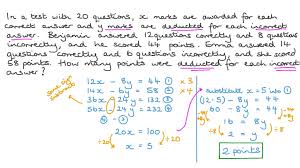 In a test with 20 questions, x marks are awarded for each
correct answer and y marks are deducted for each incorrect
answer. Benjamin answered 12 questions correctly and 8 questions
incorrectly, and he scored 44 points. Emma answered 14
questions correctly and 6 questions incorrectly, and she scored
58 points. How many points were deducted for each incorrect
answer?
12x - 8y = 44 ① ×3
14x - 6y = 58 ② ×4
36x - 24y = 132 ③
56x - 24y = 232 ④
④ - ③
20x = 100
÷20 ÷20
x = 5
substitute x = 5 into ①
(12×5) - 8y = 44
60 - 8y = 44
+8y +8y
60 = 44 + 8y
-44 -44
16 = 8y
÷8 ÷8
2 = y
2 points